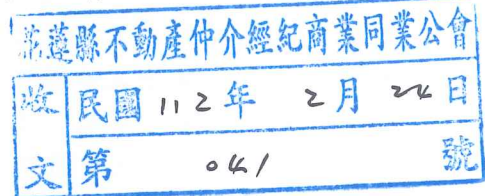 花蓮縣不動產仲介經紀商業同業公會
收文
民國112年2月24日
第041號